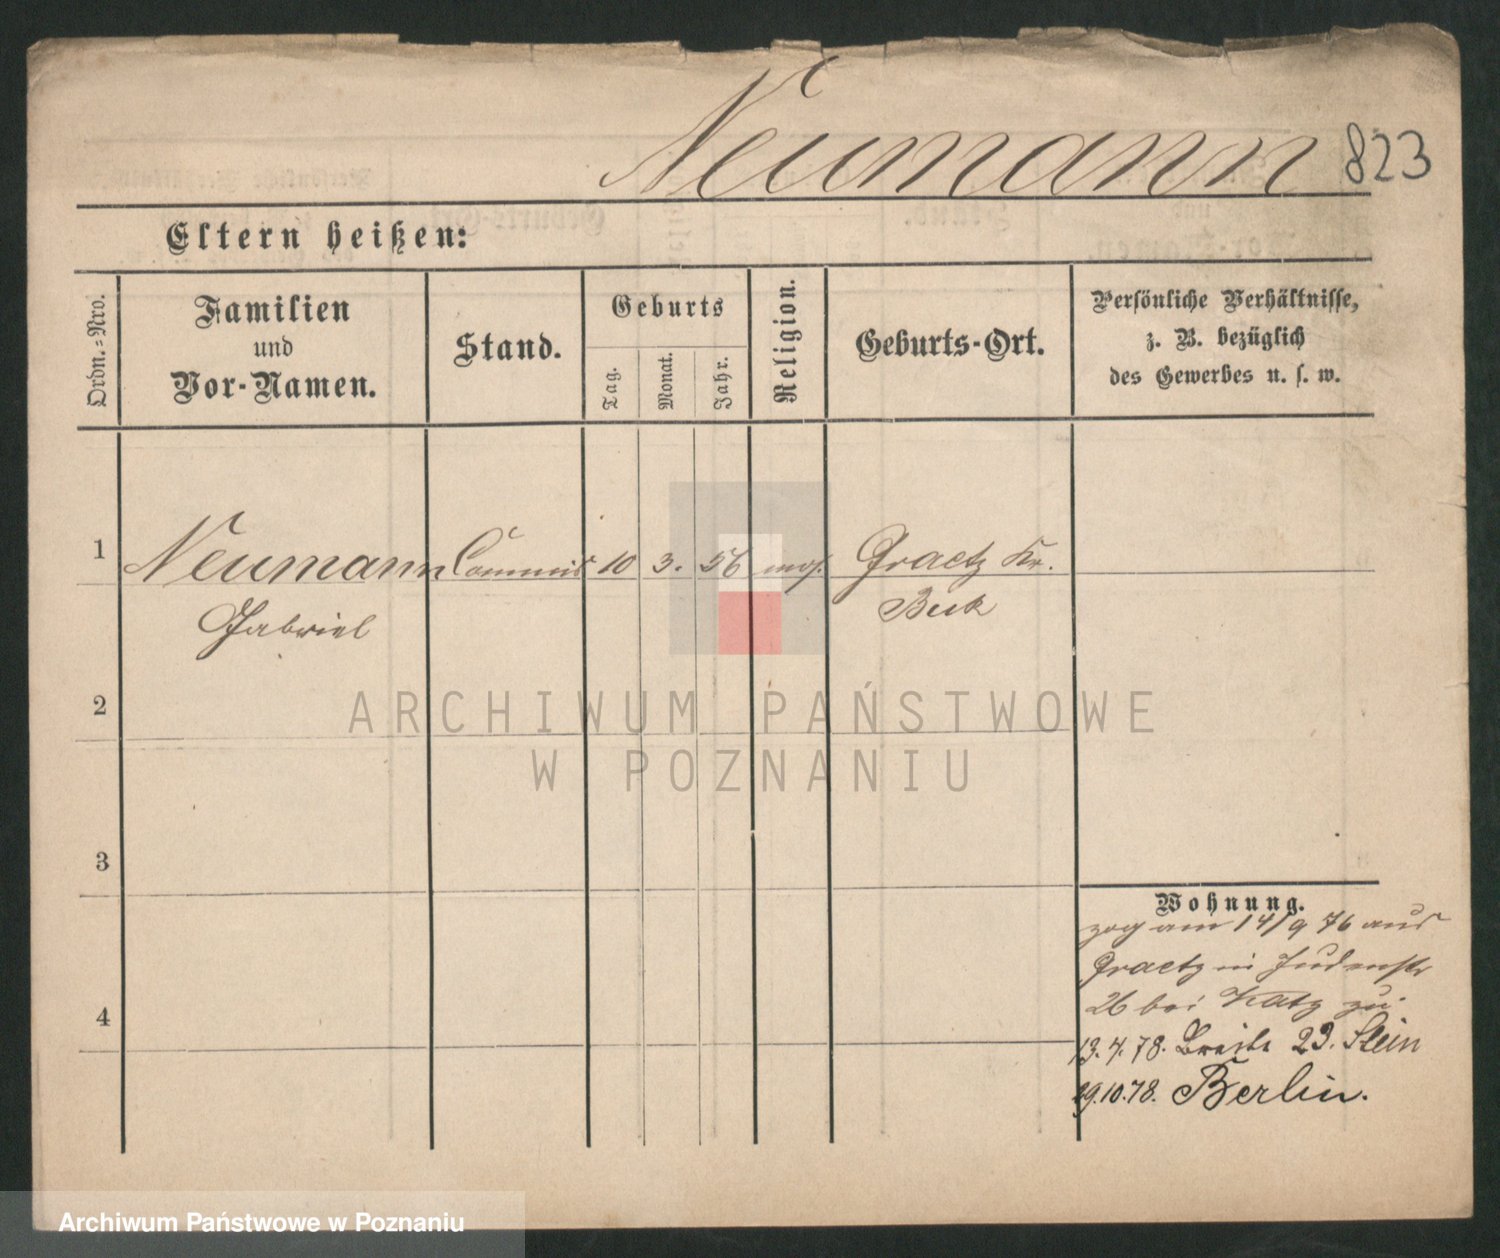 Neumann 823
Eltern heißen:
Ordn.=Nro.
Familien
und
Vor-Namen.
Stand.
Geburts
Tag.
Monat.
Jahr.
Religion.
Geburts-Ort.
Persönliche Verhältnisse,
z. B. bezüglich
des Gewerbes u. s. w.
1 Neumann Commis 10 3. 56 mos. Graetz Kr.
Gabriel Buk
2
ARCHIWUM PAŃSTWOWE
W POZNANIU
3
Wohnung.
zog am 14/9 76 aus
Graetz in Judenstr
26 bei Katz zu.
4
13.4.78. Breite 23. Stein
29.10.78. Berlin.
Archiwum Państwowe w Poznaniu